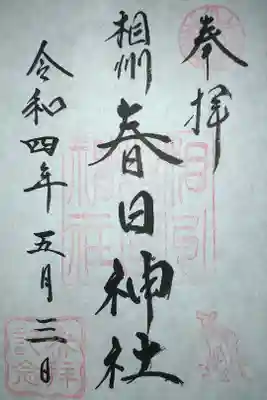 奉拝
相州
春日神社
令和四年五月三日